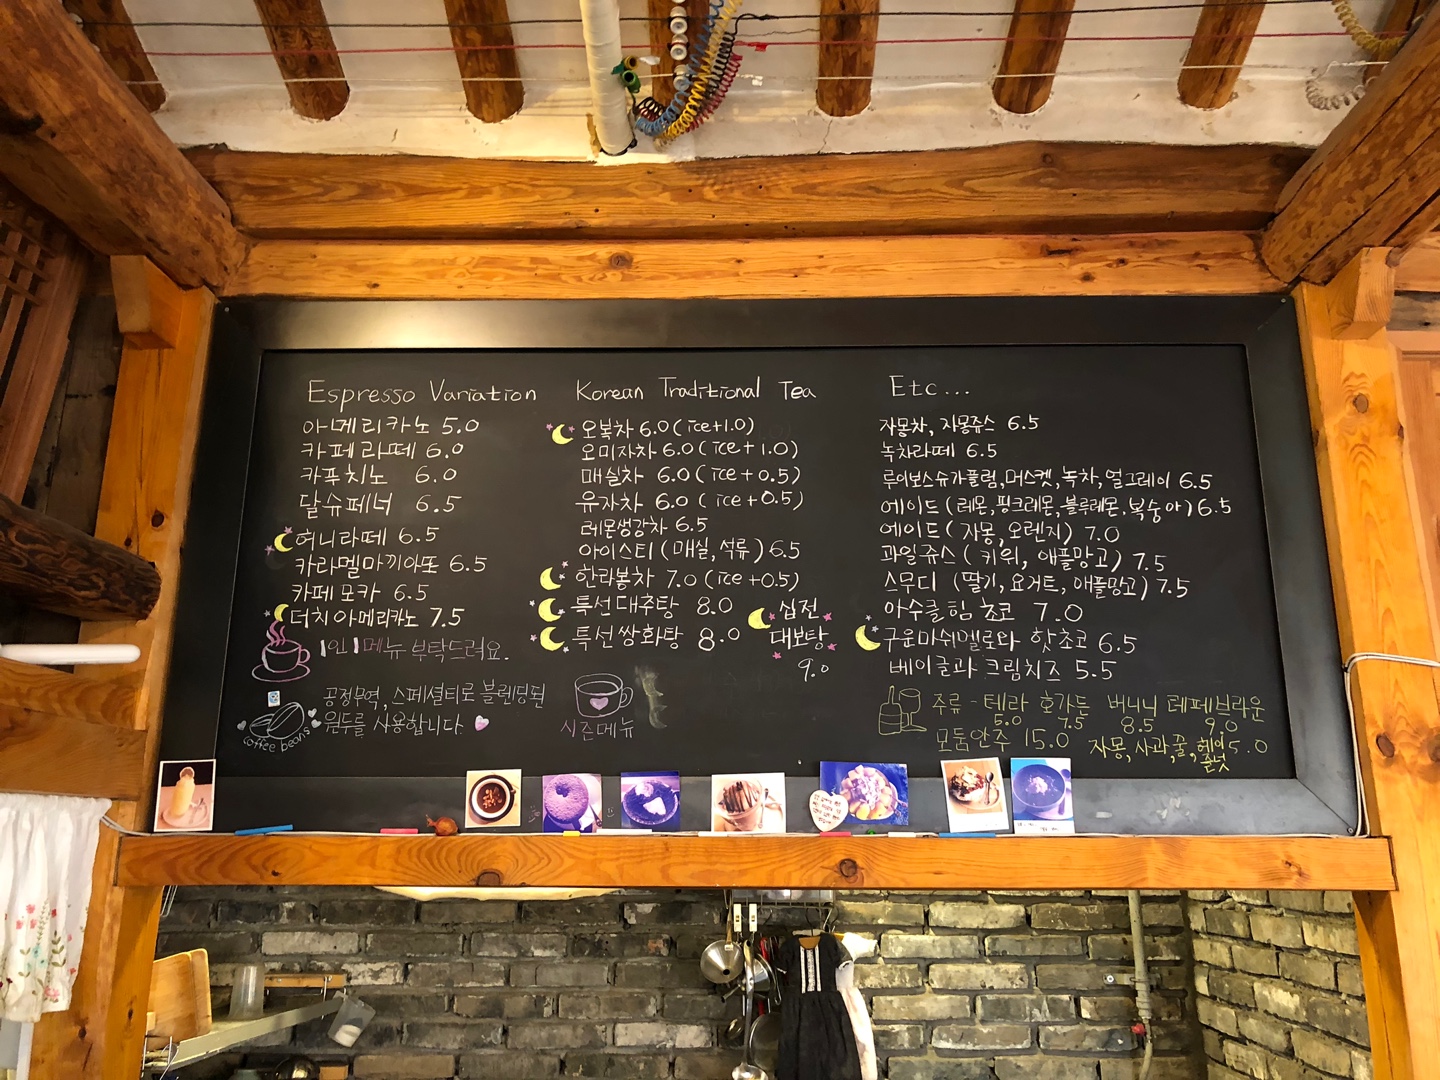 Espresso Variation
아메리카노 5.0
카페라떼 6.0
카푸치노 6.0
달슈페너 6.5
허니라떼 6.5
카라멜마끼아또 6.5
카페모카 6.5
더치아메리카노 7.5
1인 1메뉴 부탁드려요.
공정무역, 스페셜티로 블렌딩된
원두를 사용합니다
coffee beans
Korean Traditional Tea
오복차 6.0 (ice+1.0)
오미자차 6.0 (ice+1.0)
매실차 6.0 (ice+0.5)
유자차 6.0 (ice+0.5)
레몬생강차 6.5
아이스티 (매실,석류) 6.5
한라봉차 7.0 (ice+0.5)
특선대추탕 8.0
특선쌍화탕 8.0
십전
대보탕
9.0
시즌메뉴
Etc...
자몽차, 자몽쥬스 6.5
녹차라떼 6.5
루이보스슈가플럼,머스켓,녹차,얼그레이 6.5
에이드 (레몬,핑크레몬,블루레몬,복숭아) 6.5
에이드 (자몽,오렌지) 7.0
과일쥬스 (키위, 애플망고) 7.5
스무디 (딸기,요거트,애플망고) 7.5
아수클림 쵸코 7.0
구운마쉬멜로와 핫쵸코 6.5
베이글과 크림치즈 5.5
주류 - 테라 호가든 버니니 데페브라운
5.0 7.5 8.5 9.0
모둠안주 15.0
자몽,사과,꿀,헤이즐넛 5.0